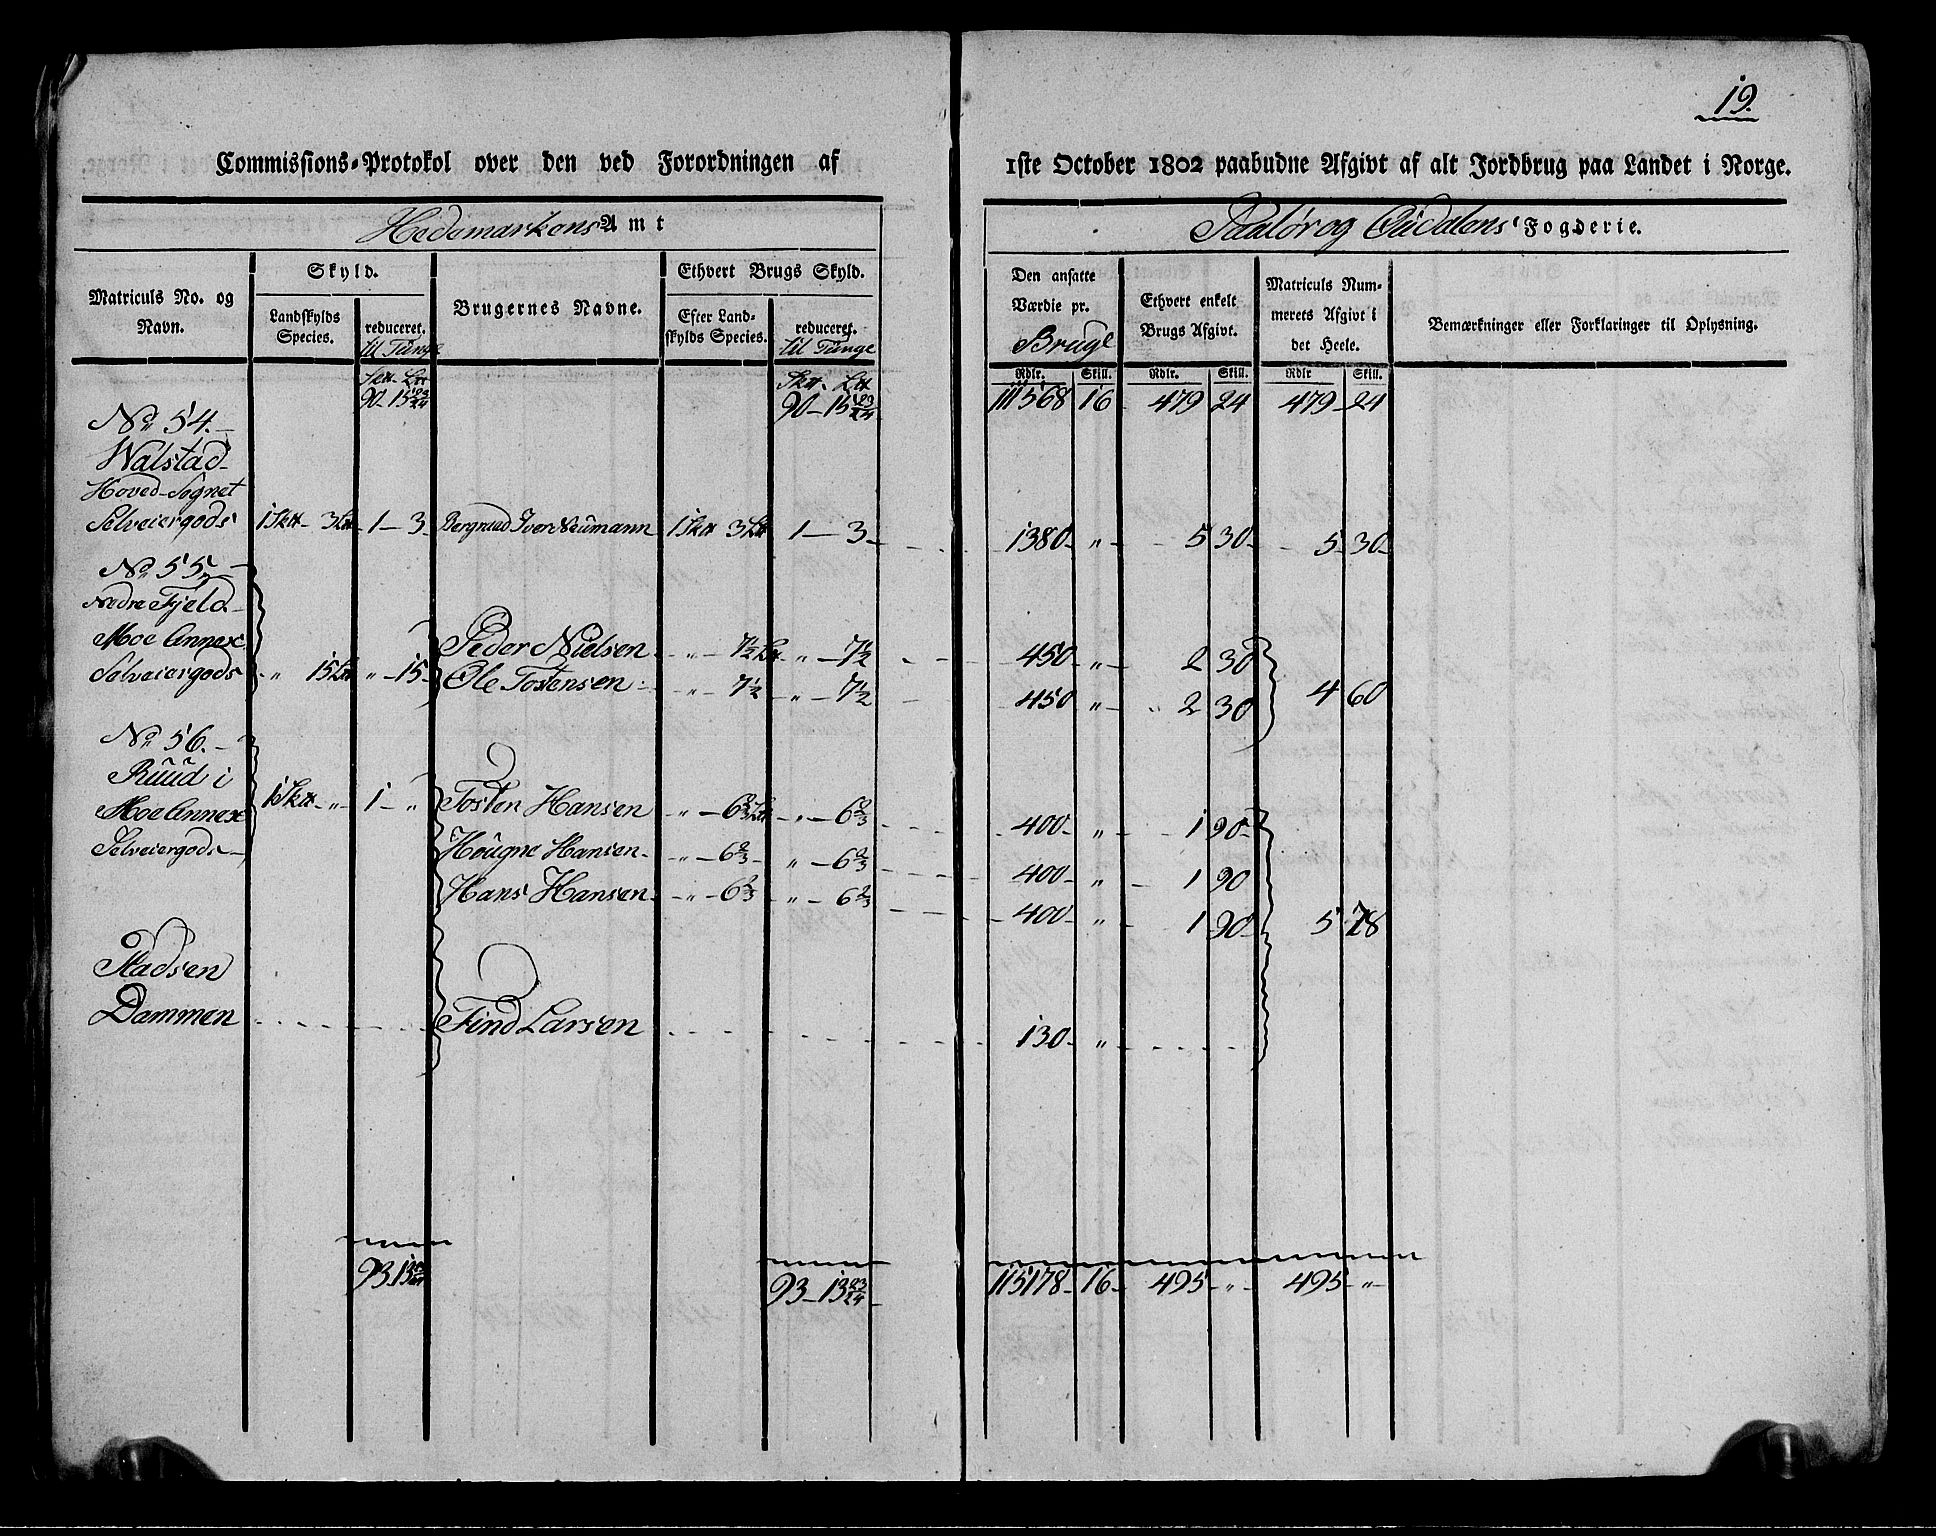 19.
Commissions-Protokol over den ved Forordningen af 1ste October 1802 paabudne Afgivt af alt Jordbrug paa Landet i Norge.
Hedemarkens Amt
og Fogderie.
Matriculs No. og Navn.
Skyld.
Landskylds Species.
reduceret. til Tunge
Brugernes Navne.
Ethvert Brugs Skyld.
Efter Landskylds Species.
reduceret. til Tunge
Den ansatte Værdie pr. Brug
Ethvert enkelt Brugs Afgivt.
Matriculs Nummerets Afgivt i det Heele.
Bemærkninger eller Forklaringer til Oplysning.
Rdlr. Skill. Rdlr. Skill. Rdlr Skill.
90-15 23/24 90-15 23/24 111568 16 479 24 479-24
No 54.
Walstad
Hoved-Sognet
Selveiergods 1 3 1-3 Iver Neumann 1 3 1-3 1380 " 5 30 5 30
No 55
Nedre Fjeld
Moe Annex Peder Nielsen " 7½ " 7½ 450 " 2 30
Selveiergods " 15 " 15 Ole Tostensen " 7½ " 7½ 450 " 2 30 4 60
No 56.
Ruud i
Moe Annex 1 " 1 " Tosten Hansen " 6⅔ " 6⅔ 400 " 1 90
Selveiergods Hougne Hansen " 6⅔ " 6⅔ 400 " 1 90
Hans Hansen " 6⅔ " 6⅔ 400 " 1 90 5 78
Pladsen
Dammen Find Larsen 130 "
93 13 23/24 93-13 23/24 115178 16 495 " 495 "